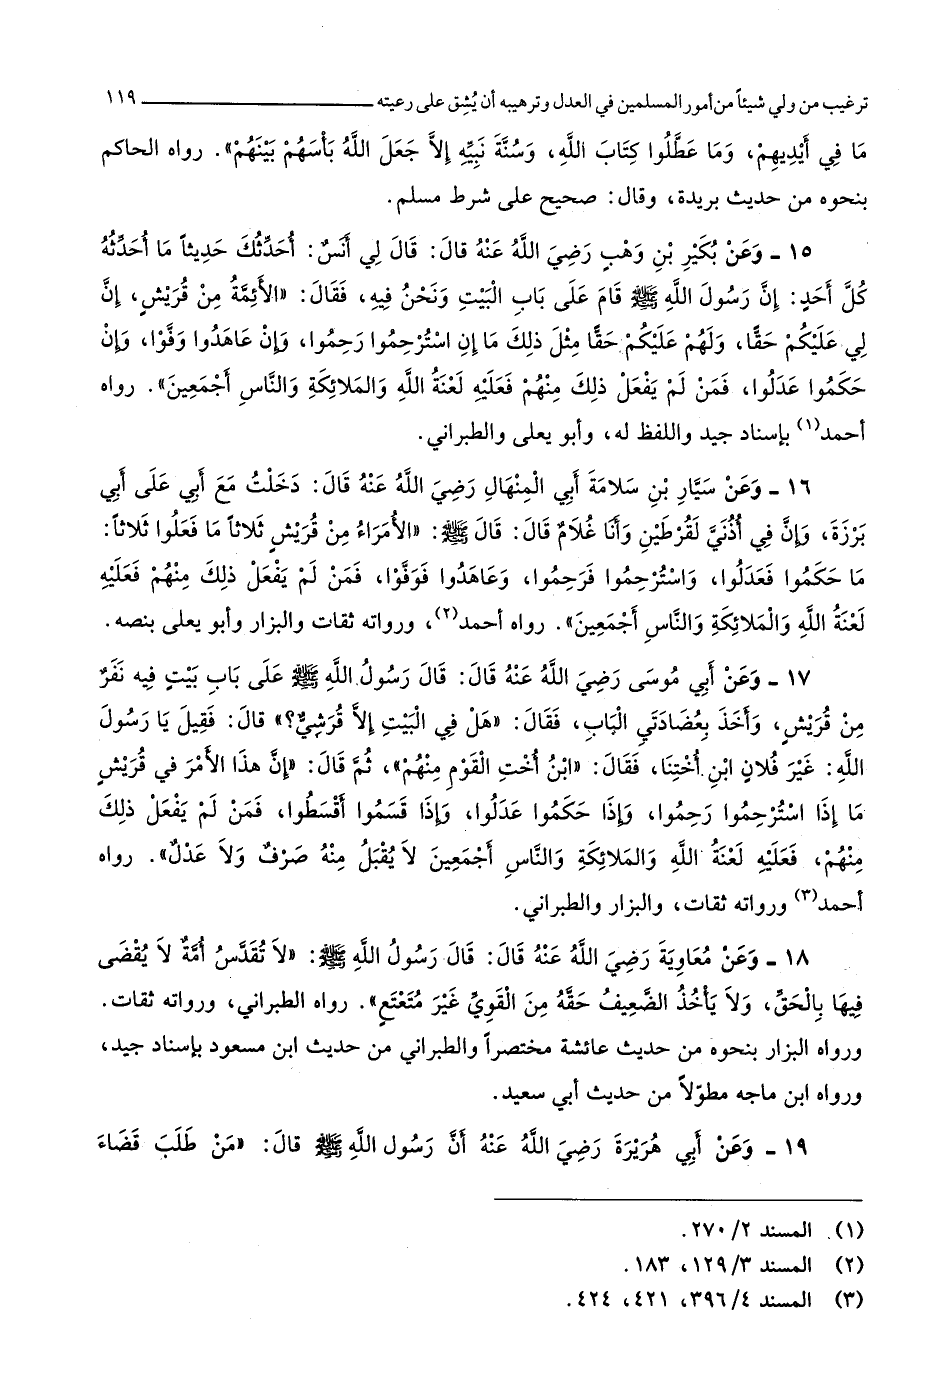 ترغيب من ولي شيئاً من أمور المسلمين في العدل وترهيبه أن يُشِق على رعيته ١١٩
مَا فِي أَيْدِيهِمْ، وَمَا عَطَّلُوا كِتَابَ اللَّهِ، وَسُنَّةَ نَبِيِّهِ إِلاَّ جَعَلَ اللَّهُ بَأْسَهُمْ بَيْنَهُمْ». رواه الحاكم
بنحوه من حديث بريدة، وقال: صحيح على شرط مسلم.
١٥ ـ وَعَنْ بُكَيْرِ بْنِ وَهْبٍ رَضِيَ اللَّهُ عَنْهُ قالَ: قَالَ لِي أَنَسٌ: أُحَدِّثُكَ حَدِيثاً مَا أُحَدِّثُهُ
كُلَّ أَحَدٍ: إِنَّ رَسُولَ اللَّهِ ﷺ قَامَ عَلَى بَابِ الْبَيْتِ وَنَحْنُ فِيهِ، فَقَالَ: «الأَئِمَّةُ مِنْ قُرَيْشٍ، إِنَّ
لِي عَلَيْكُمْ حَقًّا، وَلَهُمْ عَلَيْكُمْ حَقًّا مِثْلَ ذلِكَ مَا إِنِ اسْتُرْحِمُوا رَحِمُوا، وَإِنْ عَاهَدُوا وَفَّوْا، وَإِنْ
حَكَمُوا عَدَلُوا، فَمَنْ لَمْ يَفْعَلْ ذلِكَ مِنْهُمْ فَعَلَيْهِ لَعْنَةُ اللَّهِ وَالمَلائِكَةِ وَالنَّاسِ أَجْمَعِينَ». رواه
أحمد(١) بإسناد جيد واللفظ له، وأبو يعلى والطبراني.
١٦ ـ وَعَنْ سَيَّارِ بْنِ سَلامَةَ أَبِي الْمِنْهَالِ رَضِيَ اللَّهُ عَنْهُ قَالَ: دَخَلْتُ مَعَ أَبِي عَلَى أَبِي
بَرْزَةَ، وَإِنَّ فِي أُذُنَيَّ لَقُرْطَيْنِ وَأَنَا غُلَامٌ قَالَ: قَالَ ﷺ: «الأُمَرَاءُ مِنْ قُرَيْشٍ ثَلاثاً مَا فَعَلُوا ثَلاثاً:
مَا حَكَمُوا فَعَدَلُوا، وَاسْتُرْحِمُوا فَرَحِمُوا، وَعَاهَدُوا فَوَفَّوْا، فَمَنْ لَمْ يَفْعَلْ ذلِكَ مِنْهُمْ فَعَلَيْهِ
لَعْنَةُ اللَّهِ وَالْمَلائِكَةِ وَالنَّاسِ أَجْمَعِينَ». رواه أحمد(٢)، ورواته ثقات والبزار وأبو يعلى بنصه.
١٧ ـ وَعَنْ أَبِي مُوسَى رَضِيَ اللَّهُ عَنْهُ قَالَ: قَالَ رَسُولُ اللَّهِ ﷺ عَلَى بَابِ بَيْتٍ فِيهِ نَفَرٌ
مِنْ قُرَيْشٍ، وَأَخَذَ بِعُضَادَتَيِ الْبَابِ، فَقَالَ: «هَلْ فِي الْبَيْتِ إِلاَّ قُرَشِيٌّ؟» قالَ: فَقِيلَ يَا رَسُولَ
اللَّهِ: غَيْرَ فُلانِ ابْنِ أُخْتِنَا، فَقَالَ: «ابْنُ أُخْتِ الْقَوْمِ مِنْهُمْ»، ثُمَّ قَالَ: «إِنَّ هذَا الأَمْرَ في قُرَيْشٍ
مَا إِذَا اسْتُرْحِمُوا رَحِمُوا، وَإِذَا حَكَمُوا عَدَلُوا، وَإِذَا قَسَمُوا أَقْسَطُوا، فَمَنْ لَمْ يَفْعَلْ ذلِكَ
مِنْهُمْ، فَعَلَيْهِ لَعْنَةُ اللَّهِ وَالمَلائِكَةِ وَالنَّاسِ أَجْمَعِينَ لاَ يُقْبَلُ مِنْهُ صَرْفٌ وَلاَ عَدْلٌ». رواه
أحمد(٣) ورواته ثقات، والبزار والطبراني.
١٨ ـ وَعَنْ مُعَاوِيَةَ رَضِيَ اللَّهُ عَنْهُ قَالَ: قَالَ رَسُولُ اللَّهِ ﷺ: «لاَ تُقَدَّسُ أُمَّةٌ لاَ يُقْضَى
فِيهَا بِالْحَقِّ، وَلاَ يَأْخُذُ الضَّعِيفُ حَقَّهُ مِنَ الْقَوِيِّ غَيْرَ مُتَعْتَعٍ». رواه الطبراني، ورواته ثقات.
ورواه البزار بنحوه من حديث عائشة مختصراً والطبراني من حديث ابن مسعود بإسناد جيد،
ورواه ابن ماجه مطوّلاً من حديث أبي سعيد.
١٩ ـ وَعَنْ أَبِي هُرَيْرَةَ رَضِيَ اللَّهُ عَنْهُ أَنَّ رَسُولَ اللَّهِ ﷺ قالَ: «مَنْ طَلَبَ قَضَاءَ
(١) المسند ٢/ ٢٧٠.
(٢) المسند ٣/ ١٢٩، ١٨٣.
(٣) المسند ٤/ ٣٩٦، ٤٢١، ٤٢٤.